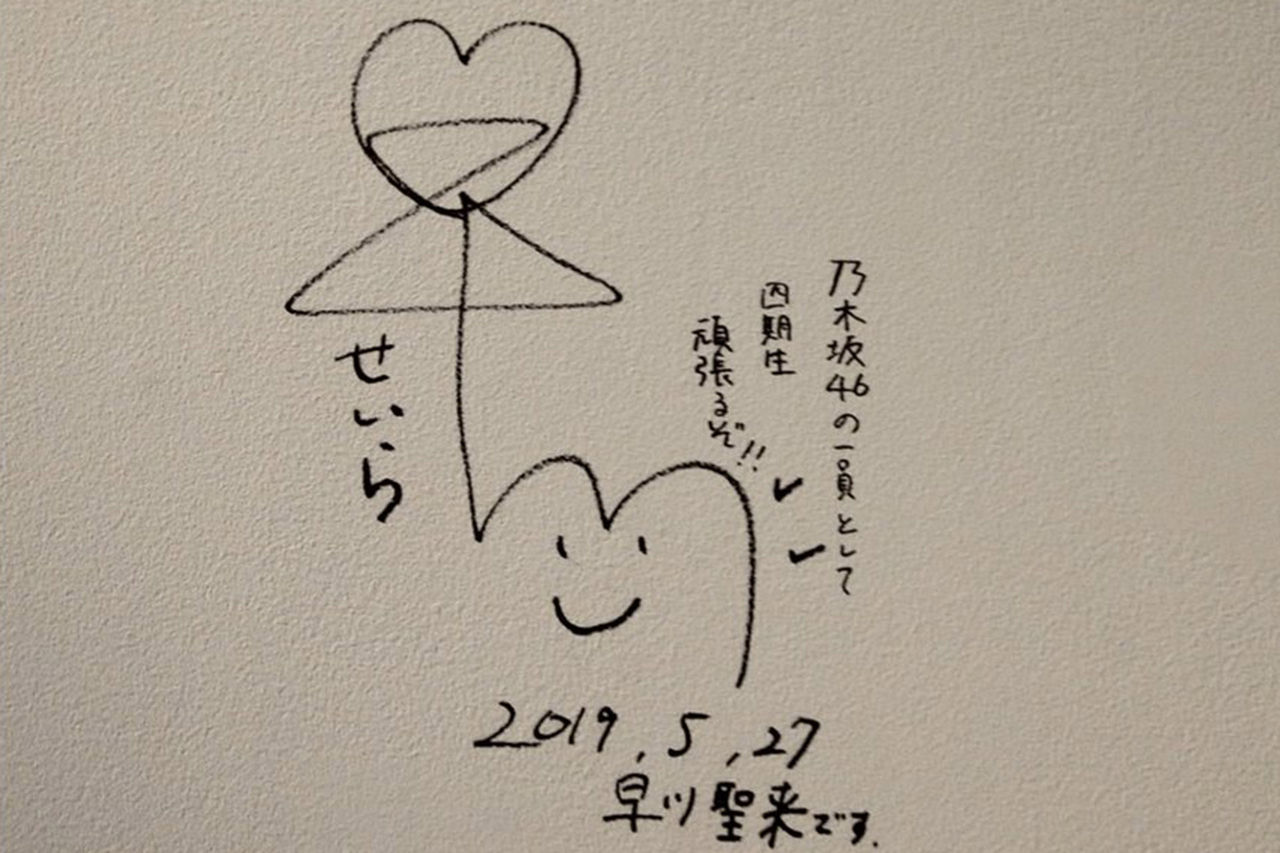 乃木坂46の一員として
四期生
頑張るぞ!!
せいら
2019.5.27
早川聖来です.